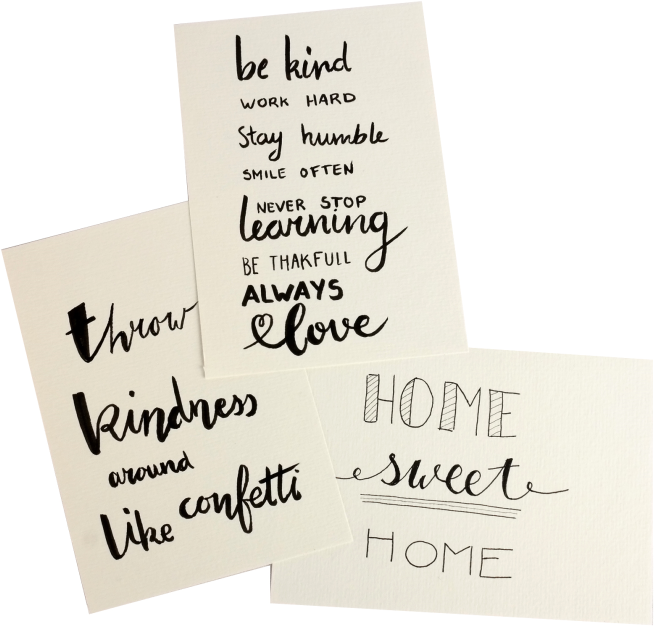 be kind
WORK HARD
Stay humble
SMILE OFTEN
NEVER STOP
learning
BE THAKFULL
ALWAYS
love
throw
kindness
around
like confetti
HOME
sweet
HOME